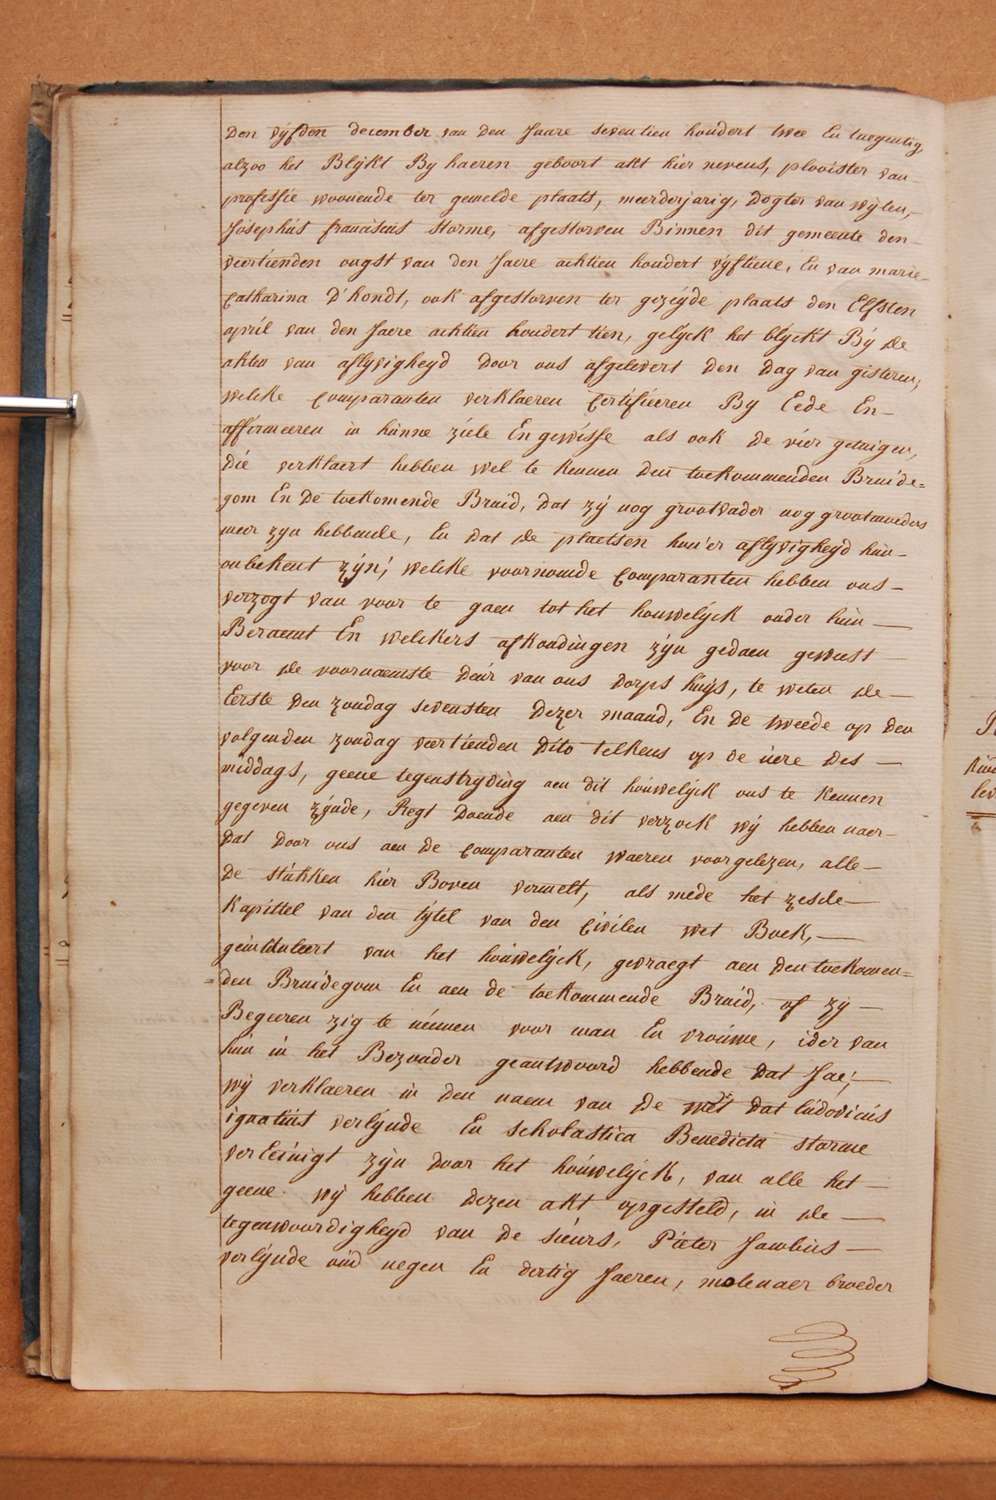 Den vyfden december van den Jaare seventien hondert twee En tnegentig,
alzoo het Blykt By haeren geboort akt hier nevens, plooister van
professie woonende ter gemelde plaats, meerderjarig, Dogter van wylen,
Josephus franciscus Storme, afgestorven Binnen dit gemeente den
veertienden ougst van den Jaere achtien hondert vyftiene, En van marie
Catharina D'hondt, ook afgestorven ter gezeyde plaats den Elfsten
april van den Jaere achtien hondert tien, gelyck het blyckt By de
akten van aflyvigheyd Door ons afgelevert Den Dag van gisteren,
welcke Comparanten verklaeren Certifiieren By Eede En
affirmeeren in hunne ziele En gewisse als ook de vier getuigen,
die verklaert hebben wel te kennen Den toekommenden Bruide=
gom En De toekomende Bruid, Dat zy nog grootvader nog grootmoeders
meer zyn hebbende, En dat de plaetsen hun'er aflyvigheyd hun
onbekent zyn; welcke voornomde Comparanten hebben ons
verzogt van voor te gaen tot het houwelyck onder hun
Beraemt En welckers afkondingen zyn gedaen geweest
voor de voornaemste deur van ons Dorps huys, te weten de
Eerste Den zondag sevensten Dezer maand, En De tweede op den
volgenden zondag veertienden Dito telkens op de uere Des
middags, geene tegenstryding aen dit houwelyck ons te kennen
gegeven zynde, Regt Doende aen dit verzoek wy hebben naer
Dat Door ons aen De Comparanten waeren voorgelezen, alle
De stukken hier Boven vermelt, als mede het zesde
Kapittel van den tytel van den Civilen wet Boek,
geintituleert van het houwelyck, gevraegt aen Den toekomen=
den Bruidegom En aen de toekommende Bruid, of zy
Begeeren zig te nemen voor man En vrouwe, ider van
hun in het Bezonder geantwoord hebbende Dat Jae;
wy verklaeren in den naem van De wet Dat Ludovicus
ignatius verlynde En Scholastica Benedicta Storme
verEinigt zyn door het houwelyck, van alle het
geene wy hebben dezen akt opgesteld, in de
tegenwoordigheyd van de sieurs, Pieter Jacobus
verlynde oud negen En dertig Jaeren, molenaer broeder